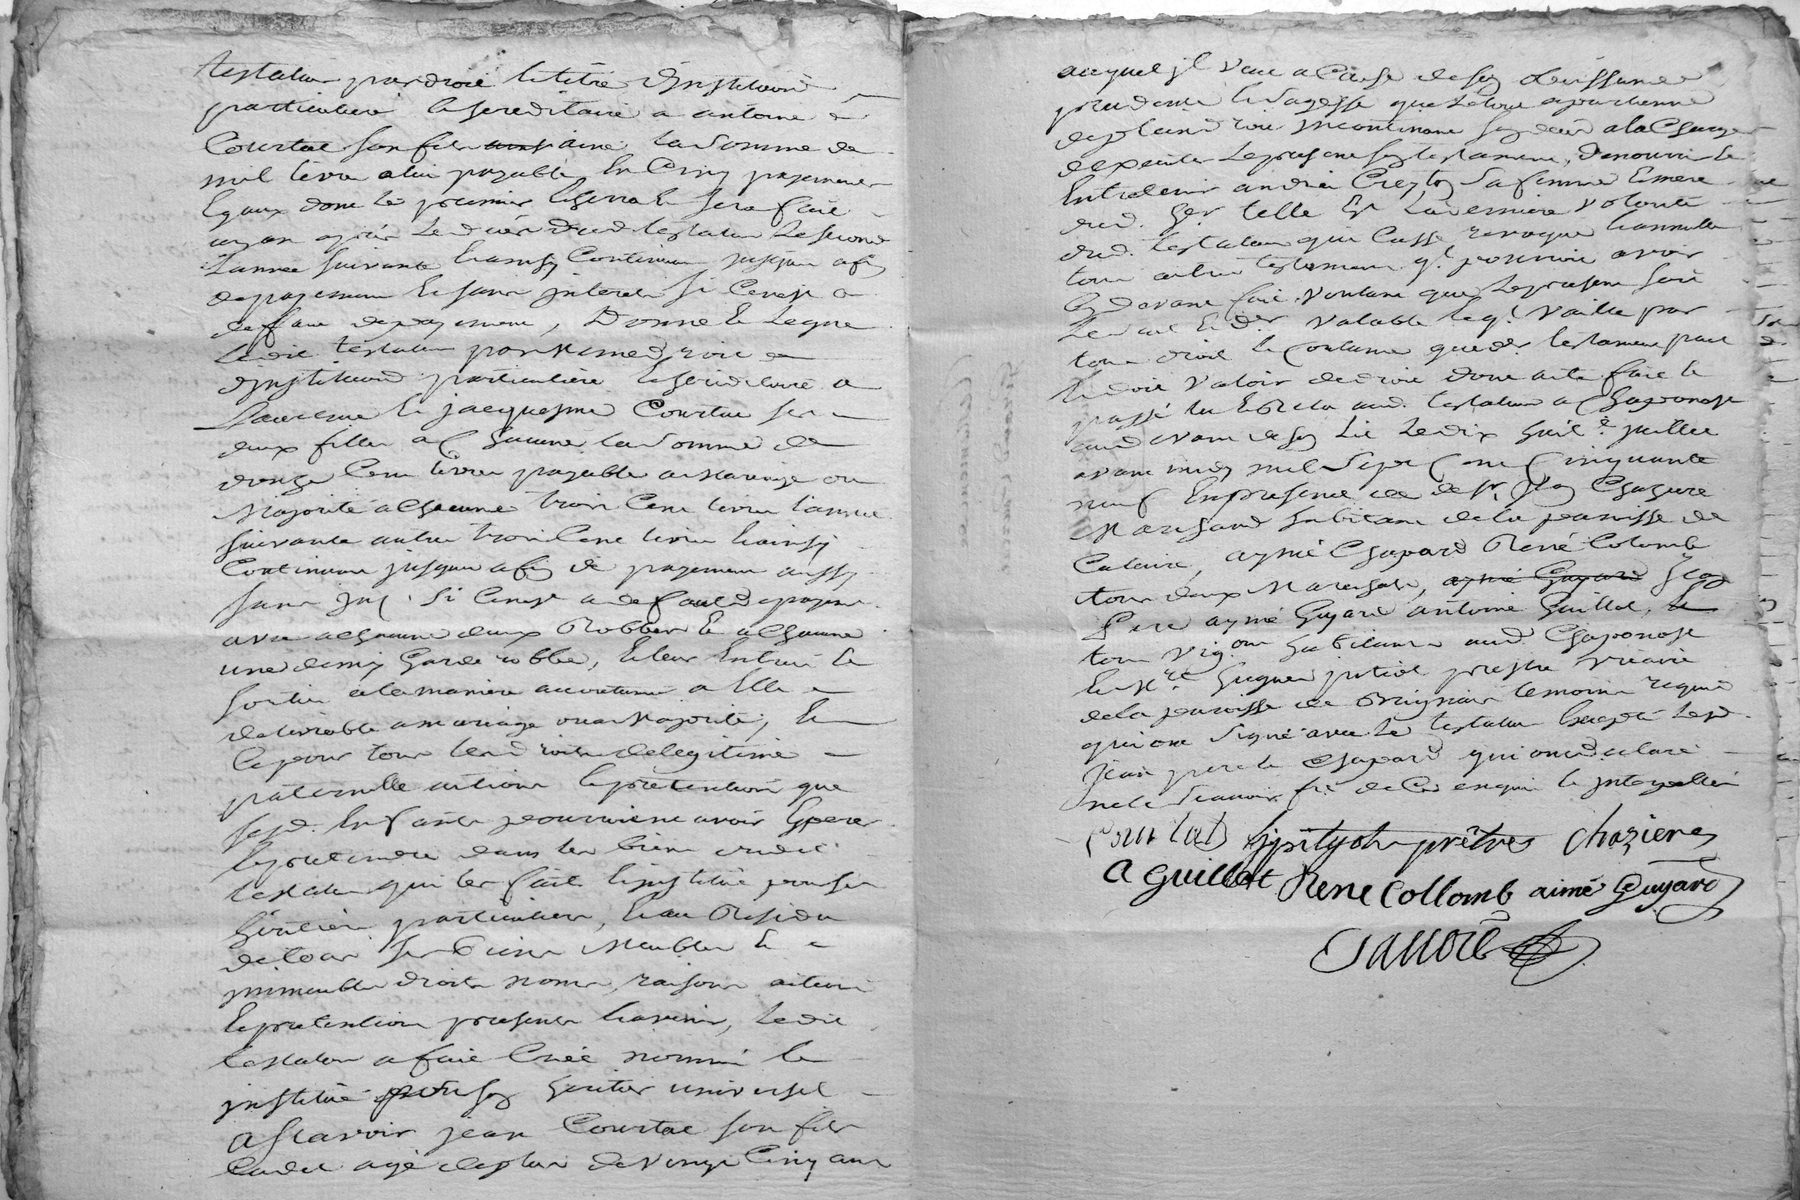 testateur par droit et titre d'institution
particuliere et hereditaire a antoine
Courtat son fils ainé la somme de
mil livre a lui payable En Cinq payements
Egaux dont le premier Esgera Et sera fait
un an après le decès dud testateur le second
L'année suivante Et ainsy Continuer jusqua a fin
de payement Et sans interets si Ce n'est a
deffaut de payement, Donne Et Legue
Ledit testateur par mesme droit
d'institution particulière Et hereditaire a
Laurence Et jacquesme Courtat ses
deux filles a Chacune la somme de
douze Cent livres payable a Mariage ou
Majorité a Chacune trois Cent livres l'année
suivante autre trois Cent livres Et ainsy
Continuer jusqua a fin de payement aussy
sans int. si Ce n'est a defaut de payement
avec a Chacune deux Robbes Et a Chacune
une demy Garde robbe, Et leur Entrée Et
sortie a la manière accoutumé a Elle
delivrable a mariage ou a Majorité, Et
Ce pour tous leurs droits de legitime
paternelle actions Et prétentions que
sesd. Enfants pourroient avoir Esperer
Et pretendre dans les biens dudit
testateur qui les fait Et institue pour ses
héritiers particuliers, Et au Residu
de tous ses biens Meubles Et
jmmeubles droits noms, raisons actions
Et pretentions presents Et avenir, Ledit
testateur a fait Créé nommé Et
institué pour son heritier universel
a Scavoir jean Courtat son fils
Cadet agé de plus de vingt Cinq ans
auquel jl veut a Cause de sa
prudente Et sagesse que
de plein droit incontinent son decès a la Charge
d'executer Le present son testament, de nourrir Et
Entretenir andrée sa femme Et mere
dud. her. telle Est la derniere volonté
dud. testateur qui Casse, revoque Et annulle
tous autres testaments q.l pourroit avoir
Cy devant fait, voulant que Le present soit
Le seul Et der. valable Et q.l vaille par
tous droit Et Coutume que der. testament peut
Et doit valoir de droit dont acte fait Et
passé lu Et Relu aud. testateur a Chaponost
aud devant de son lit Le dix huit.e juillet
avant midy mil sept Cent Cinquante
neuf En presence de s.r jean Chasiere
Marchand habitant de la paroisse de
Caluire, aymé Chapard René Colomb
tous deux Marchands, aymé Guyard jean
Pere aymé Guyard antoine Guillot,
tous vignerons habitants aud. Chaponost
Et M.re hugues prestre vicaire
de la paroisse de Brignais temoins requis
qui ont signé avec Le testateur Excepté Lesd.
Jean pere Et Chapard qui ont declaré
ne le scavoir fe. de Ce enquis Et interpellés
Courtat prêtre Chazieres
a guillot Rene Collomb aimé Guyard